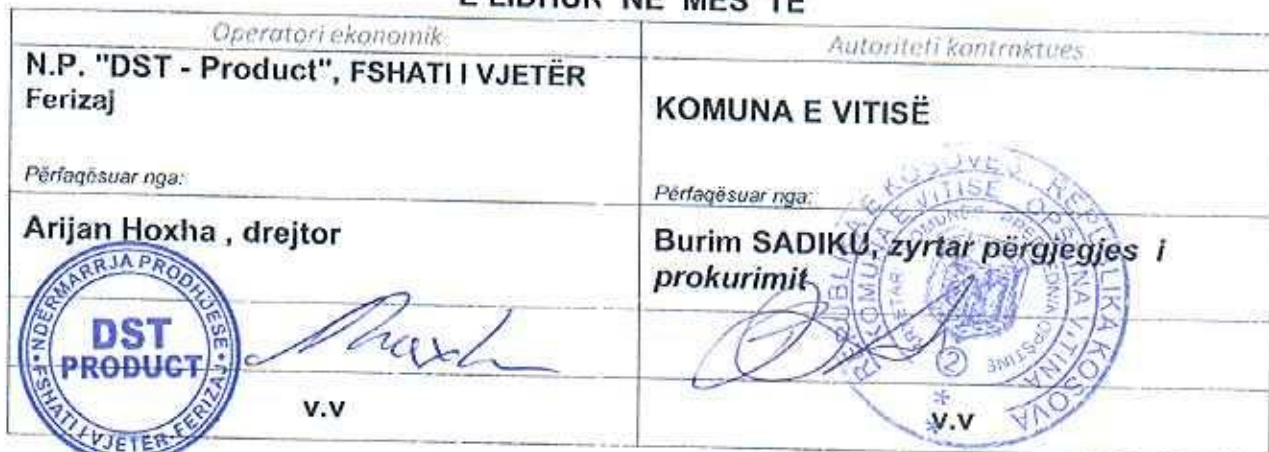 E LIDHUR NE MES TE
Operatori ekonomik
N.P. "DST - Product", FSHATI I VJETËR
Ferizaj
Përfaqësuar nga:
Arijan Hoxha , drejtor
NDËRMARRJA PRODHUESE
DST
PRODUCT
FSHATI I VJETËR-FERIZAJ
v.v
Autoriteti kontraktues
KOMUNA E VITISË
Përfaqësuar nga:
Burim SADIKU, zyrtar përgjegjes i
prokurimit
REPUBLIKA E KOSOVËS REPUBLIKA KOSOVA
KOMUNA E VITISE OPŠTINA VITINA
2
v.v